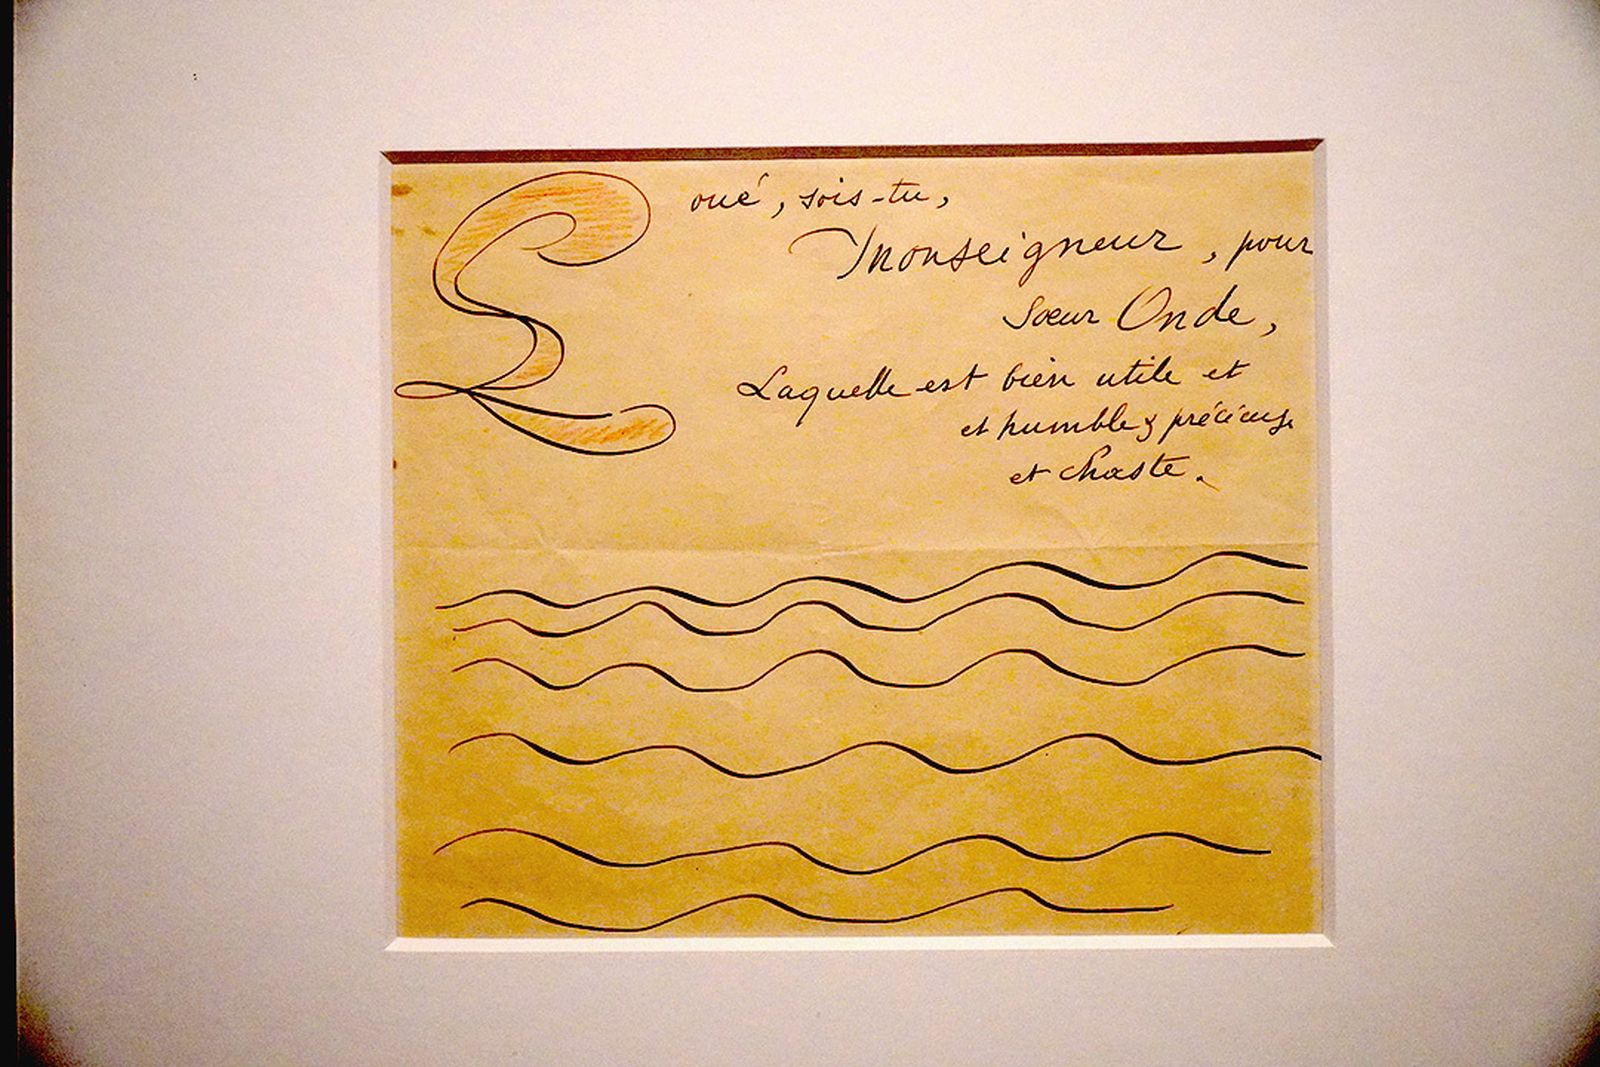 Loué, sois-tu,
Monseigneur, pour
Sœur Onde,
Laquelle est bien utile et
et humble & précieuse
et chaste.